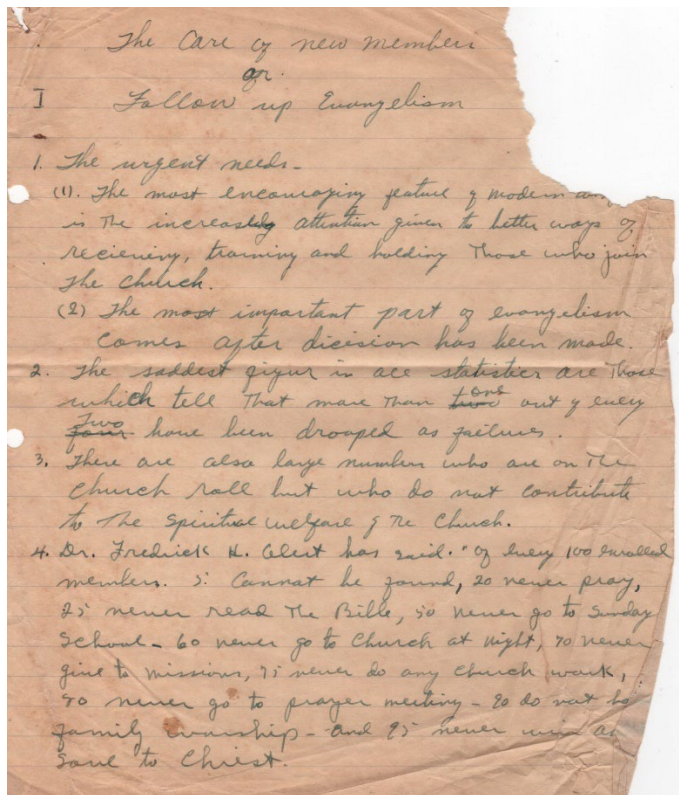 The Care of new members
or.
I Follow up Evangelism
1. The urgent needs -
(1). The most encouraging feature of modern
is The increasing attention given to better ways of
recieving, training and holding Those who join
The Church.
(2) The most important part of evangelism
Comes after dicision has been made.
2. The saddest figur in all statistics are Those
which tell That more Than one out of every
Two have been droaped as failures.
3. There are also large numbers who are on The
Church roll but who do not contribute
to The Spiritual welfare of The Church.
4. Dr. Fredrick H. has said. "Of every 100 enrolled
members. 5 Cannot be found, 20 never pray,
25 never read The Bible, 50 never go to Sunday
School - 60 never go to Church at night, 70 never
give to missions, 75 never do any Church work,
never go to prayer meeting - 90 do not
family worship - and 95 never win a
Soul to Christ.